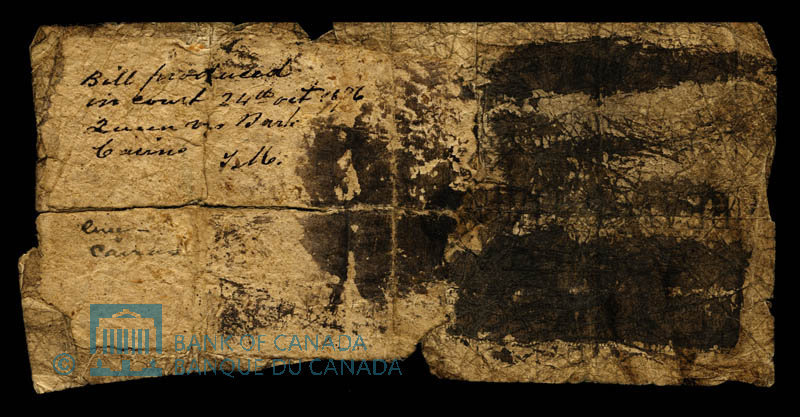 Bill produced
in court 24th oct 1876
Queen vs Bark
Cairns
Cairns
© BANK OF CANADA
BANQUE DU CANADA